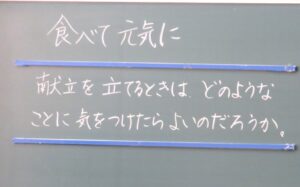 食べて元気に
献立を立てるときは、どのような
ことに気をつけたらよいのだろうか。